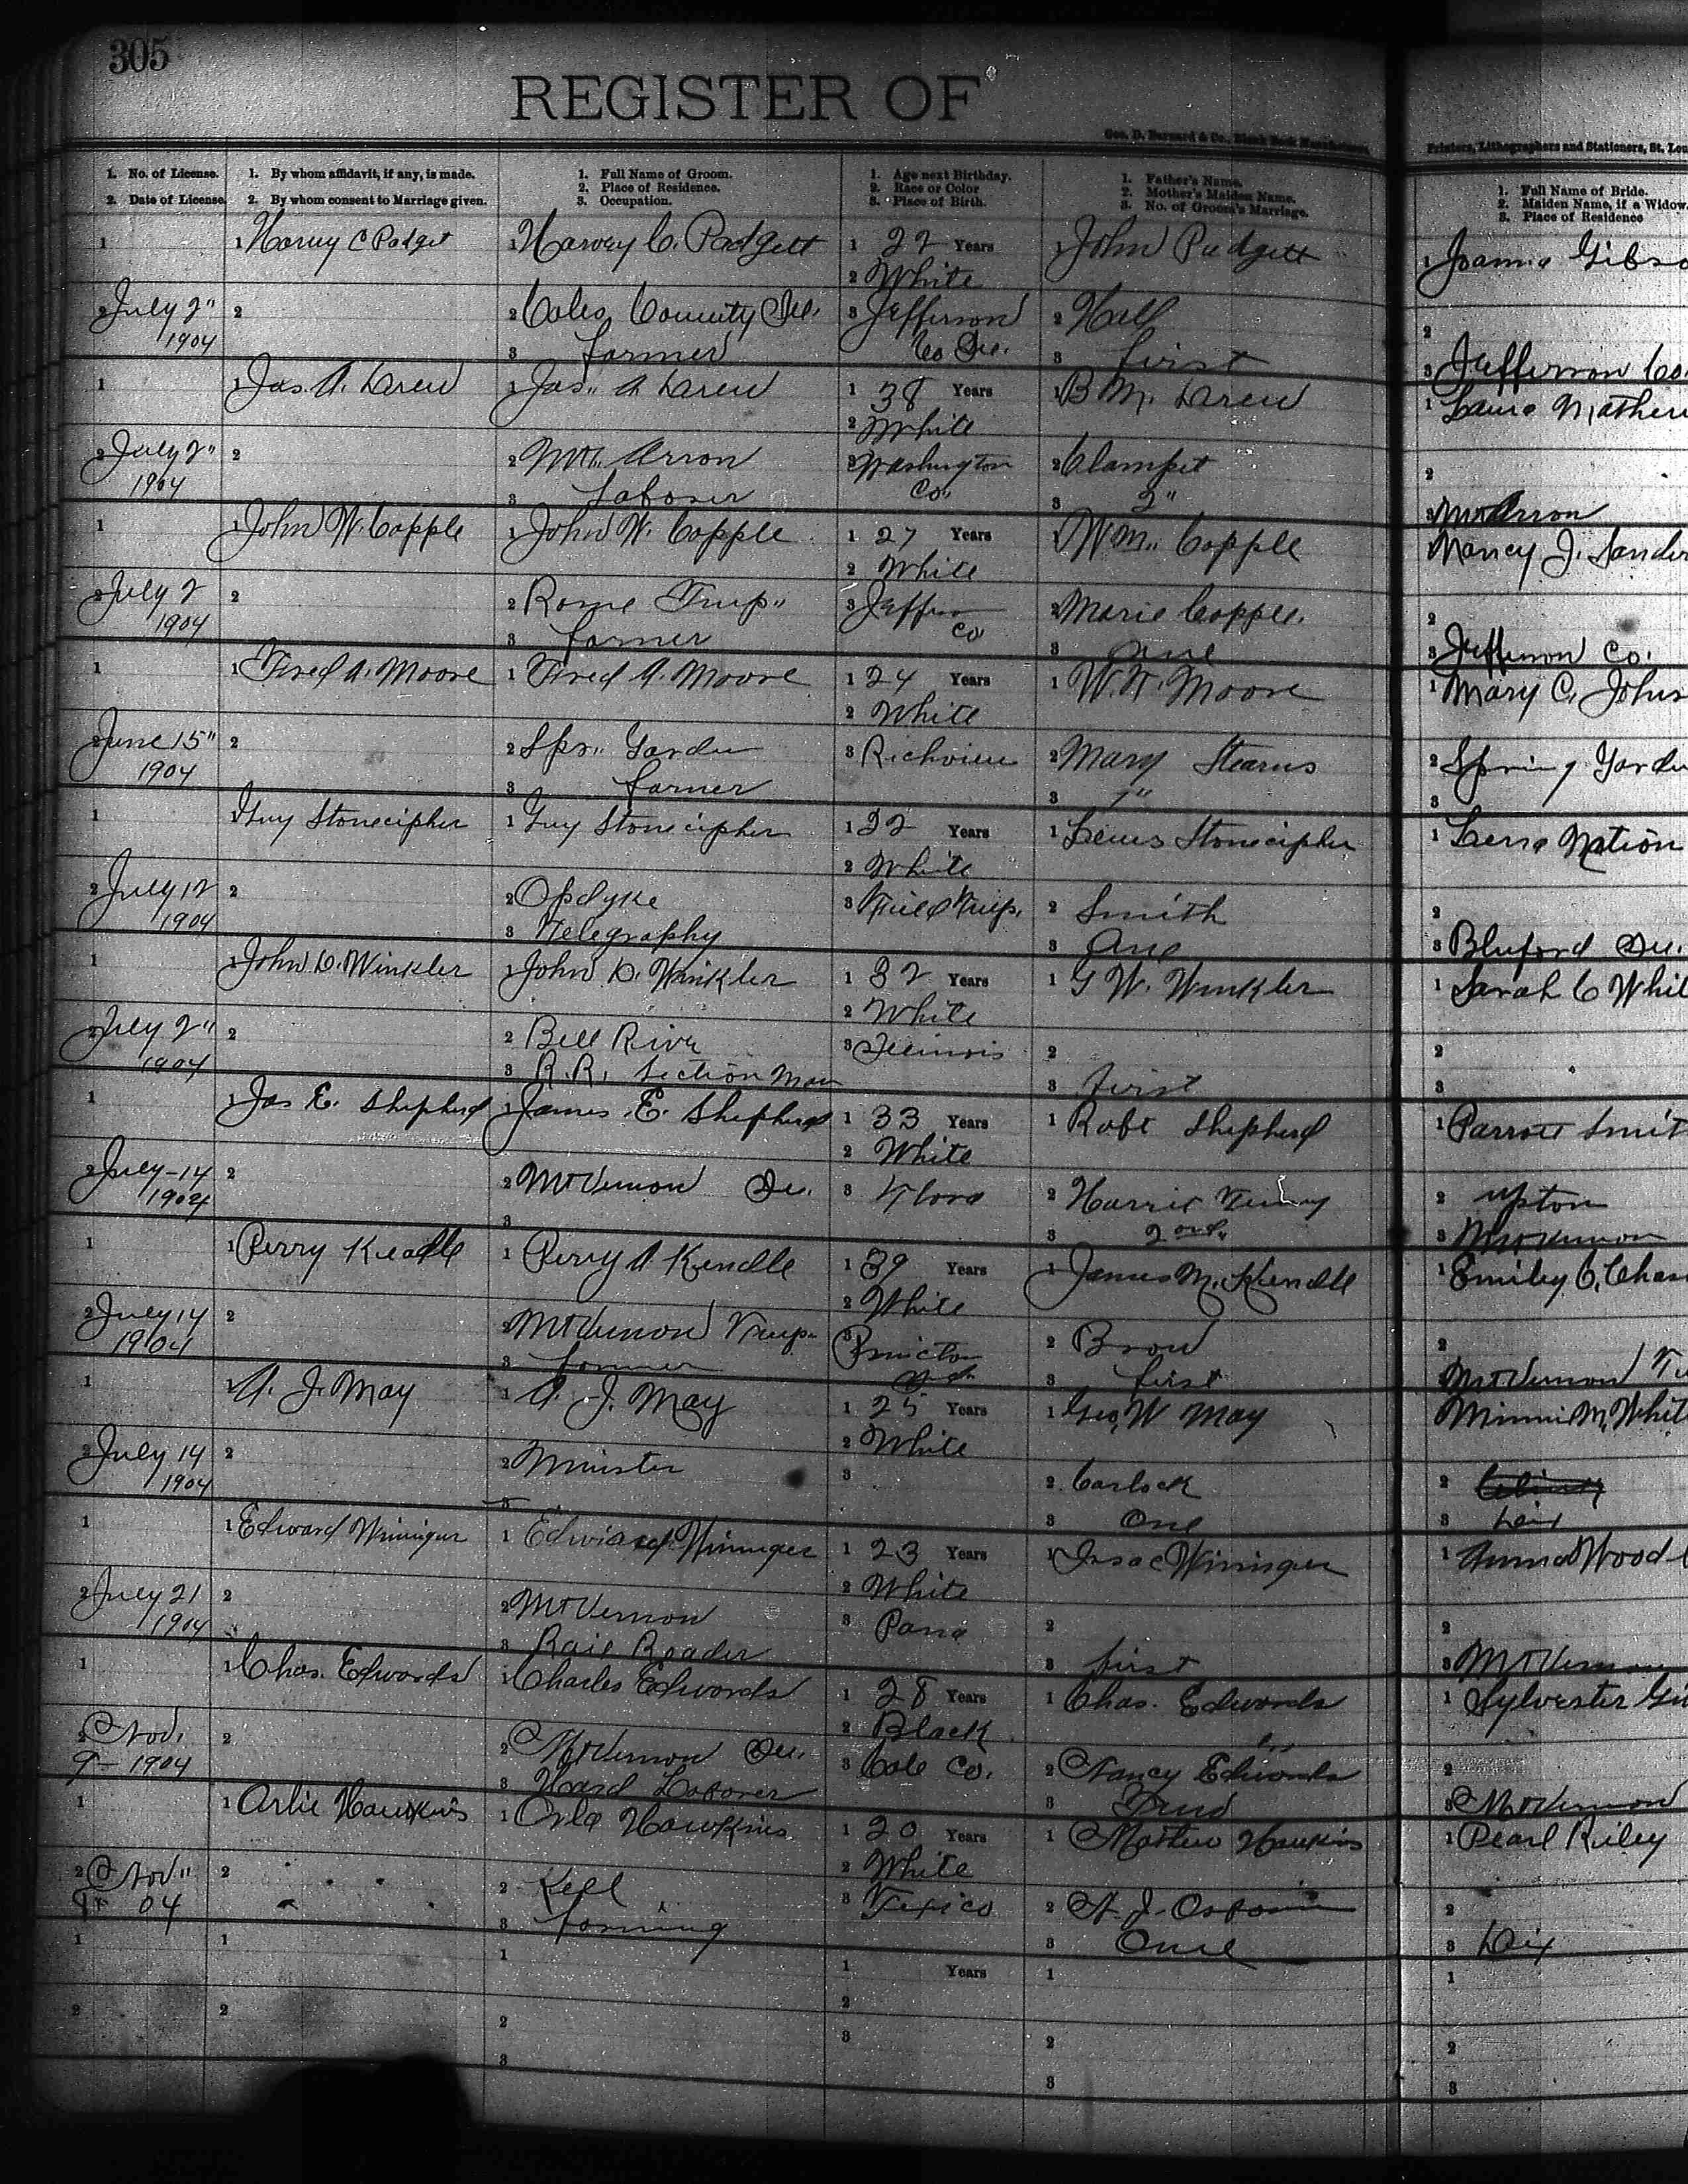 305
REGISTER OF
Geo. D. Barnard & Co., Blank Book Manufacturers,
Printers, Lithographers and Stationers, St. Lou
1. No. of License.
2. Date of License.
1. By whom affidavit, if any, is made.
2. By whom consent to Marriage given.
1. Full Name of Groom.
2. Place of Residence.
3. Occupation.
1. Age next Birthday.
2. Race or Color
3. Place of Birth.
1. Father's Name.
2. Mother's Maiden Name.
3. No. of Groom's Marriage.
1. Full Name of Bride.
2. Maiden Name, if a Widow.
3. Place of Residence
1
2 July 2" 1904
1 Harvy C Padget
2
1 Harvey C. Padgett
2 Coles County Ill.
3 farmer
1 22 Years
2 White
3 Jefferson Co Ill.
1 John Padgett
2 Hall
3 first
1 Joanna Gibso
2
3 Jefferson Co.
1
2 July 2" 1904
1 Jas. A. Drew
2
1 Jas. A Drew
2 Mt. Arron
3 Laborer
1 38 Years
2 White
3 Washington Co.
1 B M. Drew
2 Clampet
3 2"
1 Laura Mathew
2
3 Mt Arron
1
2 July 2 1904
1 John W. Copple
2
1 John W. Copple
2 Rome Twp"
3 farmer
1 27 Years
2 White
3 Jefferson Co
1 Wm. Copple
2 Marie Copple.
3 one
1 Nancy J. Sander
2
3 Jefferson Co.
1
2 June 15" 1904
1 Fred A. Moore
2
1 Fred A. Moore
2 Spr" Garden
3 farmer
1 24 Years
2 White
3 Richview
1 W. T. Moore
2 Mary Stearns
3 1"
1 Mary C. Johns
2 Spring Garden
3
1
2 July 12 1904
1 Guy Stonecipher
2
1 Guy Stonecipher
2 Opdyke
3 Telegraphy
1 22 Years
2 White
3 Field Twp.
1 Lewis Stonecipher
2 Smith
3 One
1 Nation
2
3 Bluford Ill.
1
2 July 2" 1904
1 John D. Winkler
2
1 John D. Winkler
2 Bell Rive
3 R.R. Section Man
1 32 Years
2 White
3 Illinois
1 G W. Winkler
2
3 first
1 Sarah C Whit
2
3
1
2 July-14 1904
1 Jas E. Shepherd
2
1 James E. Shepherd
2 Mt Vernon Ill.
3
1 33 Years
2 White
3 Flora
1 Robt Shepherd
2 Harris
3 2ond
1 Parrott Smit
2 Upton
3 Mt Vernon
1
2 July 14 1904
1 Perry Kendle
2
1 Perry A Kendle
2 Mt Vernon Twp.
3 farmer
1 39 Years
2 White
3 Princton
1 James M. Kendle
2 Brow
3 first
1 Emiley C. Chas
2
Mt Vernon T
1
2 July 14 1904
1 A. J. May
2
1 A. J. May
2 Minister
3
1 25 Years
2 White
3
1 Geo. W May
2 Carlock
3 One
Minnie M. Whit
2
3 Dix
1
2 July 21 1904
1 Edward Wininger
2
1 Edward Wininger
2 Mt Vernon
3 Rail Roader
1 23 Years
2 White
3 Pana
1 Isac Wininger
2
3 first
1 Anna Wood
2
3 Mt Vernon
1
2 Nov. 9- 1904
1 Chas. Edwards
2
1 Charles Edwards
2 Mt Vernon Ill.
3 Hard Laborer
1 28 Years
2 Black
3 Cole Co.
1 Chas. Edwards
2 Nancy Edwards
3
1 Sylvester Gi
2
3 Mt Vernon
1
2 Nov" 04
1 Arlie Hawkins
2
1 Orla Hawkins
2 Kell
3 farming
1 20 Years
2 White
3 Texico
1 Mathew Hawkins
2 J. Osborn
3 One
1 Pearl Riley
2
3 Dix
1
2
1
2
1
2
3
1 Years
2
3
1
2
3
1
2
3